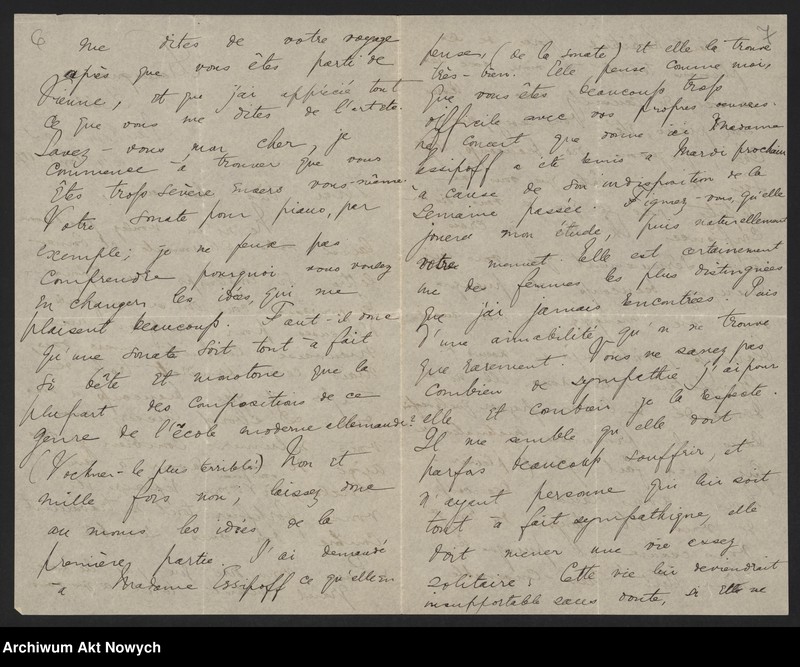 6
me dites de votre voyage
après que vous êtes parti de
Vienne, et que j'ai apprécié tout
ce que vous me dites de l'article.
Savez-vous, mon cher, je
commence à trouver que vous
êtes trop sévère envers vous-même.
Votre Sonate pour piano, par
exemple; je ne peux pas
comprendre pourquoi vous voulez
en changer les idées, qui me
plaisent beaucoup. Faut-il donc
qu'une sonate soit tout à fait
si bête et monotone que la
plupart des compositions de ce
genre de l'école moderne allemande?
(            - le plus terrible!) Non et
mille fois non; laissez donc
au moins les idées de la
première partie. J'ai demandé
à Madame Essipoff ce qu'elle en
7
pense, (de la sonate) et elle la trouve
très-bien. Elle pense comme moi,
que vous êtes beaucoup trop
difficile avec vos propres oeuvres.
Le concert que donne ici Madame
Essipoff a été remis à Mardi prochain
à cause de son indisposition de la
semaine passée. Figurez-vous, qu'elle
jouera mon étude, puis naturellement
votre menuet. Elle est certainement
une des femmes les plus distinguées
que j'ai jamais rencontrées. Puis
d'une amabilité, qu'on ne trouve
que rarement. Vous ne savez pas
combien de sympathie j'ai pour
elle et combien je la respecte.
Il me semble qu'elle doit
parfois beaucoup souffrir, et
n'ayant personne qui lui soit
tout à fait sympathique, elle
doit mener une vie assez
solitaire. Cette vie lui deviendrait
insupportable sans doute, si elle ne
Archiwum Akt Nowych